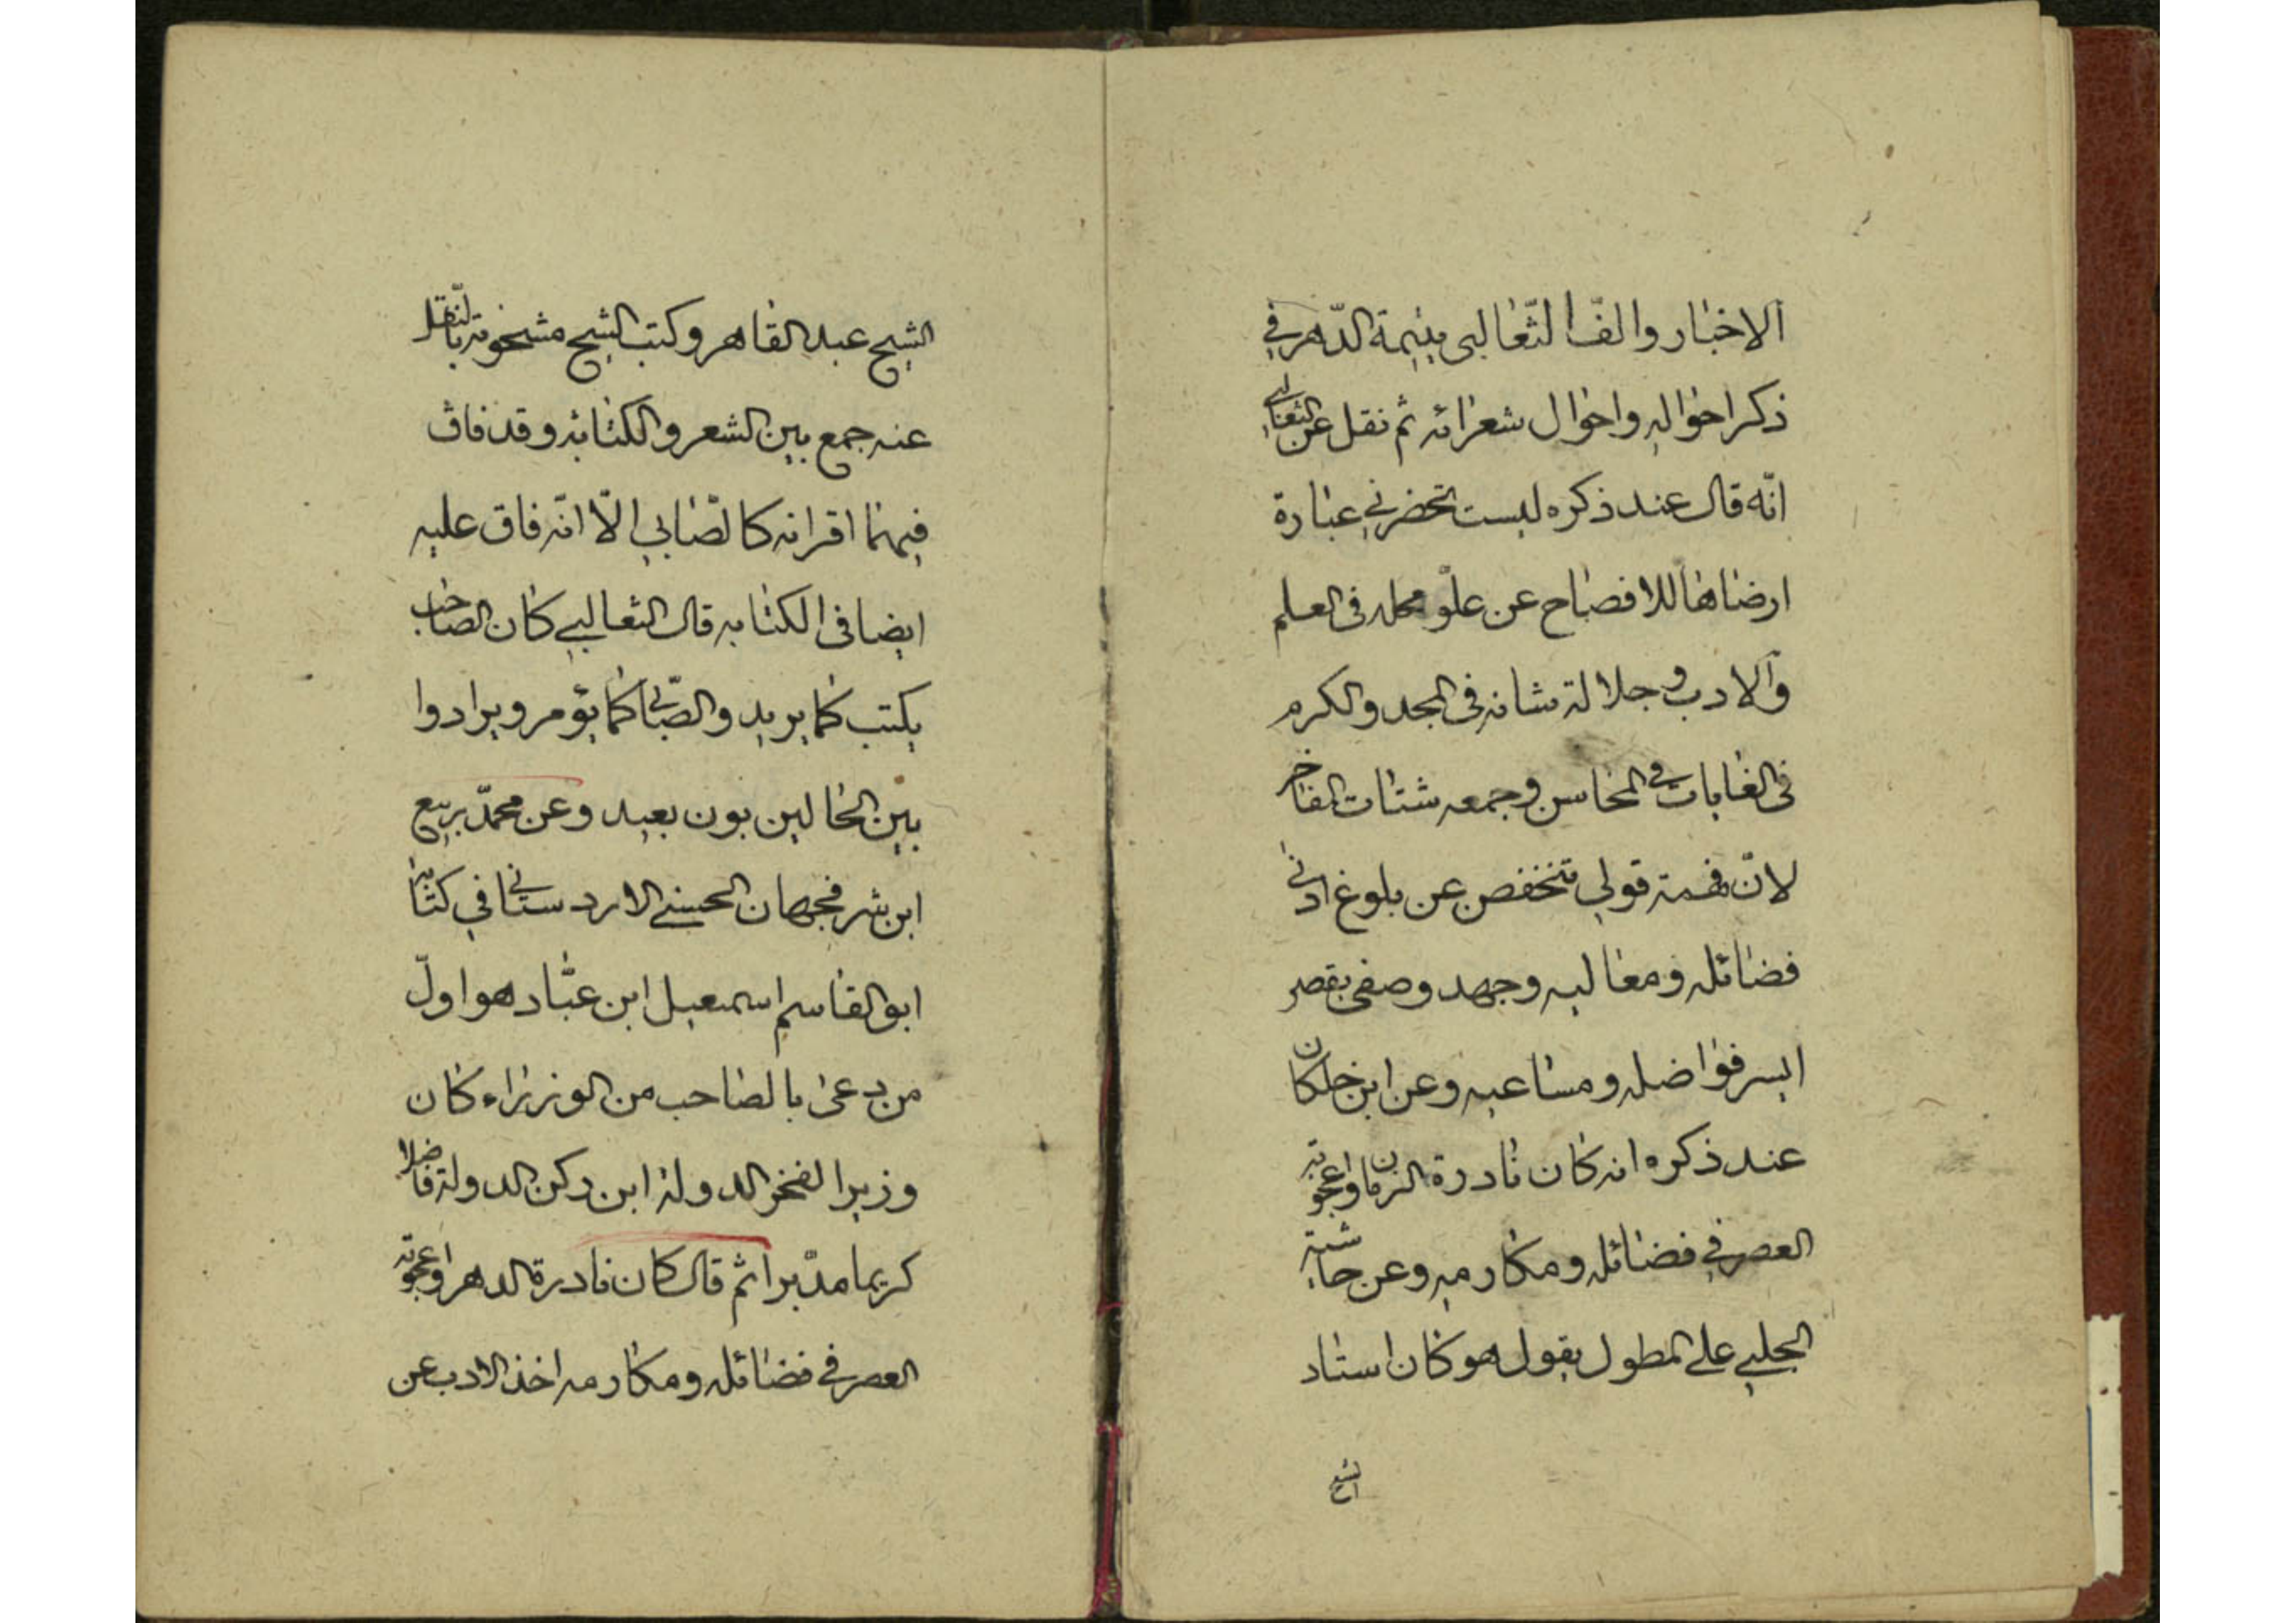 الاخبار والّف الثّعالبى يتيمة الدّهر في
ذكر احواله واحوال شعرائه ثم نقل عن الثعالبي
انّه قال عند ذكره ليست تحضرني عبارة
ارضاها للافصاح عن علوّ محله فى العلم
والادب و جلالة شانه فى المجد والكرم
فى الغايات في المحاسن وجمعه شتات المفاخر
لانّ همة قولي تنخفض عن بلوغ ادنى
فضائله ومعاليه وجهد وصفى يقصر
ايسر فواضله ومساعيه وعن ابن خلكان
عند ذكره انه كان نادرة الزمان واعجوبة
العصر في فضائله ومكارمه وعن حاشية
الجلبي على المطول يقول هو كان استاد
الشيخ
الشيخ عبد القاهر وكتب الشيخ مشحونة بالنقل
عنه جمع بين الشعر والكتابة وقد فاق
فيهما اقرانه كالصّابي الّا انّه فاق عليه
ايضا فى الكتابه قال الثعالبي كان الصاحب
يكتب كما يريد والصّابى كما يؤمر ويرادوا
بين الحالين بون بعيد وعن محمّد بربيع
ابن شرفجهان الحسني الاردستاني في كتابه
ابو القاسم اسمعيل ابن عبّاد هو اولّ
من دعى بالصاحب من الوزراء كان
وزيرا لفخر الدولة ابن ركن الدولة فاضلا
كريما مدّبرا ثم قال كان نادرة الدهر واعجوبة
العصر في فضائله ومكارمه اخذ الادب عن